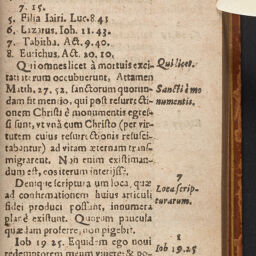 7. 15.
5. Filia Iairi. Luc. 8. 43
6. Lazarus. Ioh. 11. 43.
7. Tabitha. Act. 9. 40.
8. Eutichus. Act. 20. 10.
Qui omnes licet à mortuis exci-
tati iterum occubuerunt, Attamen
Matth. 27. 52. sanctorum quorun-
dam fit mentio, qui post resurrecti-
onem Christi è monumentis egres-
si sunt, vt vnà cum Christo (per vir-
tutem cuius resurrectionis resusci-
tabantur) ad vitam æternam trans-
migrarent. Non enim existiman-
dum est, eos iterum interiisse.
Denique scriptura um loca, quæ
ad confirmationem huius articuli
fidei produci possunt, innumera
plarè existunt. Quorum paucula
quædam proferre, non pigebit.
Iob 19 25. Equidem ego noui
redemptorem meum viuere: & po-
Qui licet.
Sancti è mo
numentis.
7
Loca scrip-
turarum.
8
Iob 19. 25